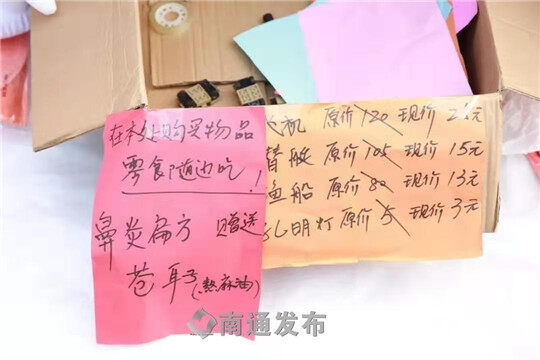 在本处购买物品
零食随边吃!
鼻炎扁方 赠送
苍耳子(熬麻油)
机 原价120 现价2元
潜艇 原价105 现价15元
渔船 原价80 现价13元
孔明灯 原价5 现价3元
南通发布